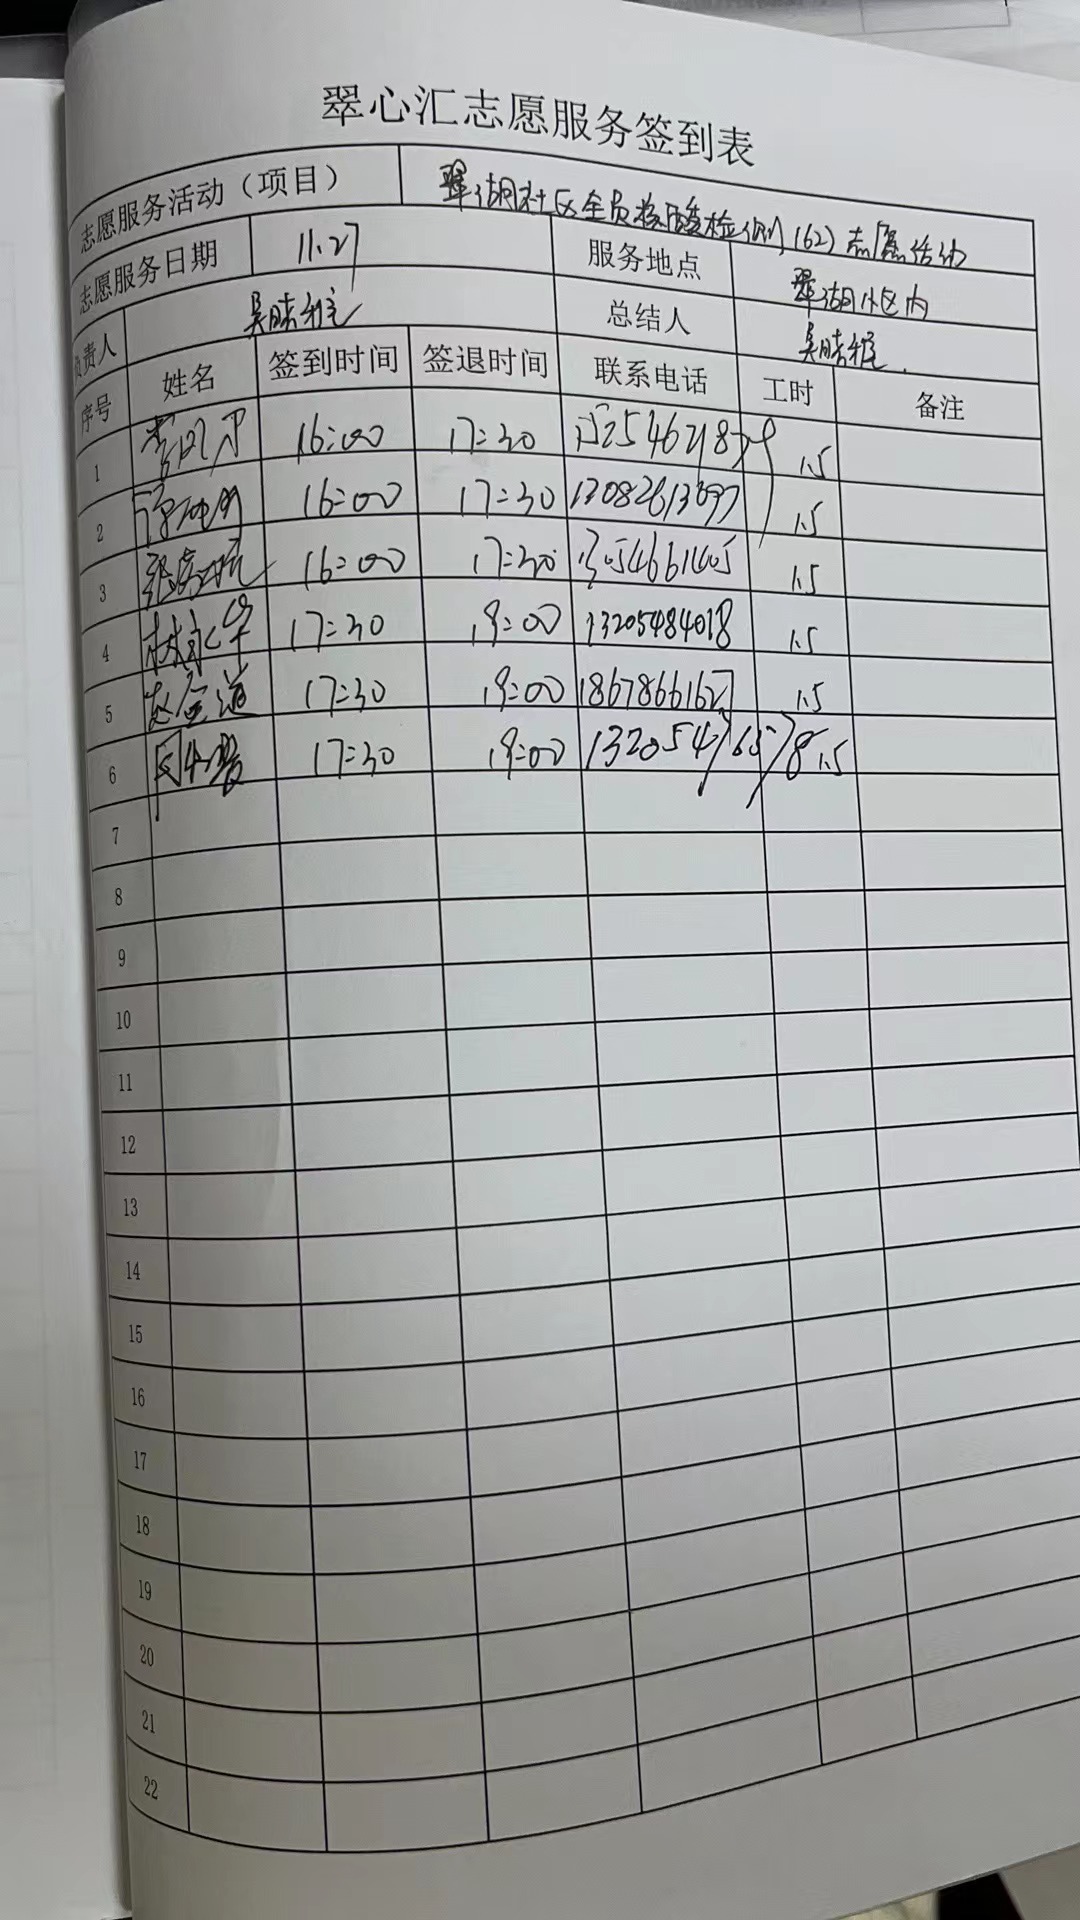 翠心汇志愿服务签到表
志愿服务活动（项目） 翠湖社区全员核酸检测（62）志愿活动
志愿服务日期 11.27 服务地点 翠湖小区内
负责人 总结人
序号 姓名 签到时间 签退时间 联系电话 工时 备注
1 16:00 17:30 1.5
2 16:00 17:30 1.5
3 16:00 17:30 1.5
4 17:30 19:00 13205484018 1.5
5 17:30 19:00 18678661627 1.5
6 17:30 19:00 13205476578 1.5
7
8
9
10
11
12
13
14
15
16
17
18
19
20
21
22